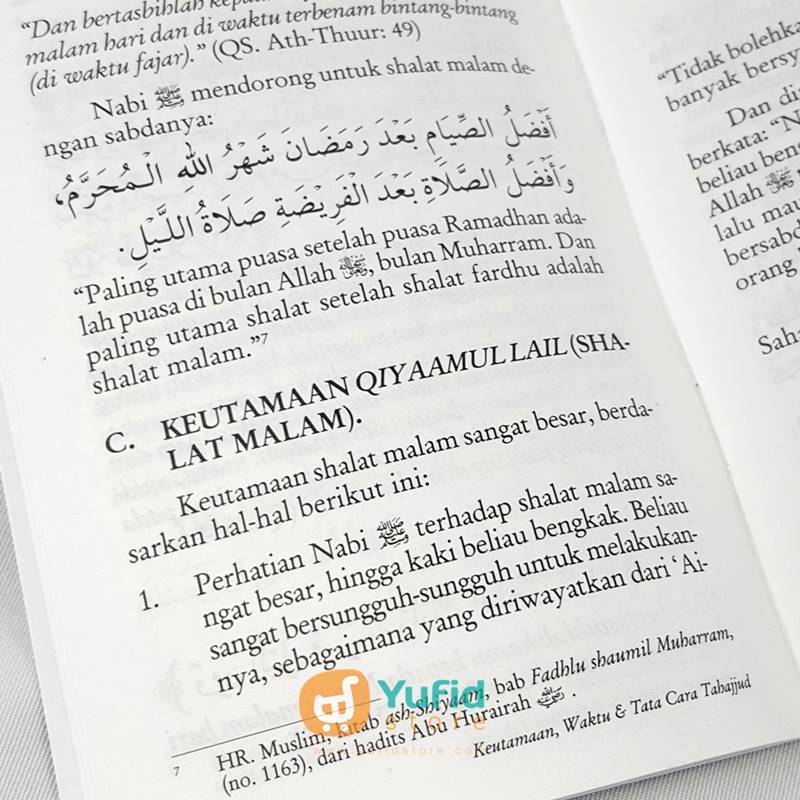 “Dan bertasbihlah
malam hari dan di waktu terbenam bintang-bintang
(di waktu fajar).” (QS. Ath-Thuur: 49)
Nabi ﷺ mendorong untuk shalat malam de-
ngan sabdanya:
أَفْضَلُ الصِّيَامِ بَعْدَ رَمَضَانَ شَهْرُ اللهِ الْمُحَرَّمُ،
وَأَفْضَلُ الصَّلَاةِ بَعْدَ الْفَرِيْضَةِ صَلَاةُ اللَّيْلِ.
“Paling utama puasa setelah puasa Ramadhan ada-
lah puasa di bulan Allah ﷻ, bulan Muharram. Dan
paling utama shalat setelah shalat fardhu adalah
shalat malam.”7
C. KEUTAMAAN QIYAAMUL LAIL (SHA-
LAT MALAM).
Keutamaan shalat malam sangat besar, berda-
sarkan hal-hal berikut ini:
1. Perhatian Nabi ﷺ terhadap shalat malam sa-
ngat besar, hingga kaki beliau bengkak. Beliau
sangat bersungguh-sungguh untuk melakukan-
nya, sebagaimana yang diriwayatkan dari ‘Ai-
7 HR. Muslim, kitab ash-Shiyaam, bab Fadhlu shaumil Muharram,
(no. 1163), dari hadits Abu Hurairah .
Keutamaan, Waktu & Tata Cara Tahajjud
“Tidak
banyak
Dan
berkata:
beliau
Allah
lalu
orang
Yufid
store